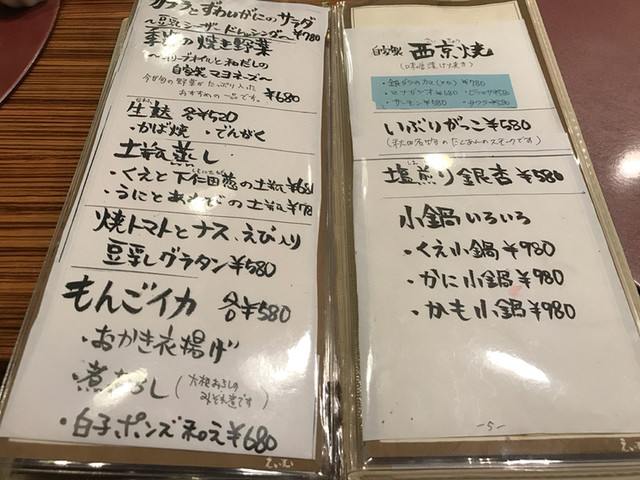 ずわいがにのサラダ
〜豆乳シーザードレッシング〜¥780
季節の焼き野菜
〜オリーブオイルと和だしの
自家製マヨネーズ〜
今が旬の野菜がたっぷり入った
おすすめの一品です。 ¥680
生麩 各¥520
・かば焼 ・でんがく
土瓶蒸し
・くえと下仁田葱の土瓶¥68
・うにとあわびの土瓶¥78
焼トマトとナス、えび入り
豆乳グラタン¥580
もんごイカ 各¥580
・おかき衣揚げ
・煮おろし(大根おろしの
みぞれ煮です)
・白子ポンズ和え¥680
自家製 西京焼
(味噌漬け焼き)
・銀ダラのカマ ¥780
・サーモン ¥580
いぶりがっこ¥580
(秋田名物のたくあんのスモークです)
塩煎り銀杏¥580
小鍋いろいろ
・くえ小鍋¥980
・かに小鍋¥980
・かも小鍋¥980
-5-